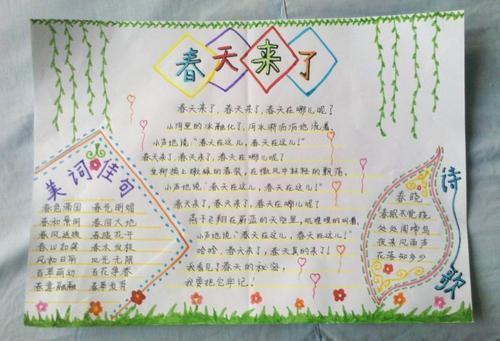 春天来了
春天来了，春天来了，春天在哪儿呢？
小河里的冰融化了，河水哗哗哗地流着，
小声地说：“春天在这儿，春天在这儿！”
春天来了，春天来了，春天在哪儿呢？
垂柳换上嫩绿的春装，在微风中轻轻的飘荡，
小声地说：“春天在这儿，春天在这儿！”
春天来了，春天来了，春天在哪儿呢？
燕子飞翔在蔚蓝的天空里，叽哩哩的叫着，
小声地说：“春天在这儿，春天在这儿！”
哈哈，春天来了，春天真的来了！
我看见了春天的秘密，
我要把它牢记！
美词佳句
春色满园 春光明媚
春和景明 春回大地
春风送暖 春暖花开
春以为期 春木发枝
风和日丽 风光无限
百草萌动 百花集春
春意融融 春华发育
诗歌
春晓
春眠不觉晓
处处闻啼鸟
夜来风雨声
花落知多少